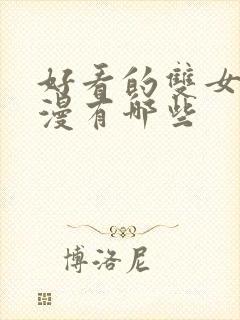 好看的雙女
漫有哪些
博洛尼